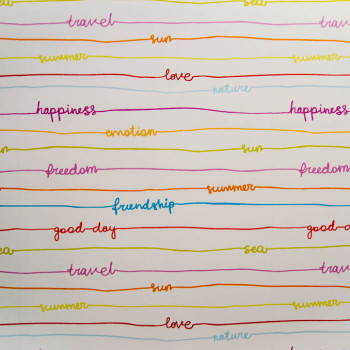 sea sea
travel travel
sun
summer summer
love
nature
happiness happiness
emotion
sun sun
freedom freedom
summer
friendship
good day good d
sea sea
travel trav
sun
summer summer
love
nature